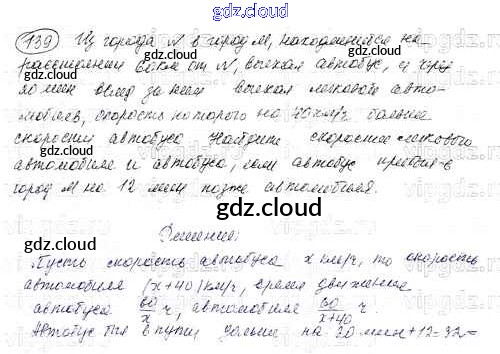 gdz.cloud
139 Из города N в город М, находящийся на
gdz.cloud
расстоянии 60км от N, выехал автобус, и через
20 мин вслед за ним выехал легковой авто-
мобиль, скорость которого на 40 км/ч больше
gdz.cloud
скорости автобуса Найдите скорости легкового
автомобиля и автобуса, если автобус прибыл в
город М на 12 мин позже автомобиля.
gdz.cloud
gdz.cloud
Решение:
gdz.cloud
Пусть скорость автобуса x км/ч, то скорость
автомобиля (x+40) км/ч, время движения
автобуса 60/x ч, автомобиля 60/x+40 ч.
gdz.cloud
gdz.cloud
Автобус был в пути дольше на 20 мин+12=32=